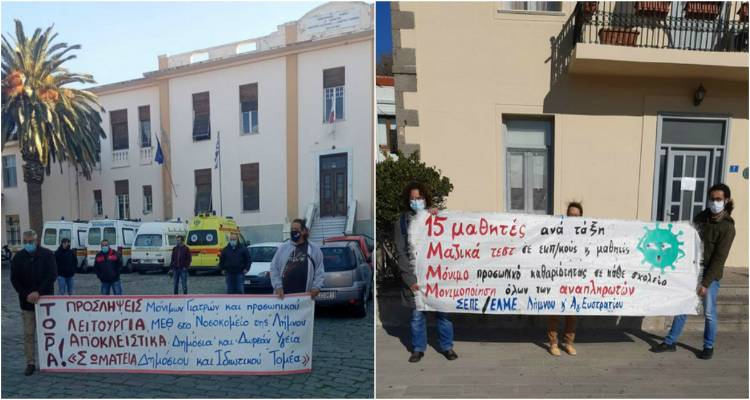 ΤΟΡΑ!
ΠΡΟΣΛΗΨΕΙΣ Μόνιμων Γιατρών και προσωπικού
ΛΕΙΤΟΥΡΓΙΑ ΜΕΘ στο Νοσοκομείο της Λήμνου
ΑΠΟΚΛΕΙΣΤΙΚΑ Δημόσια και Δωρεάν Υγεία
«ΣΩΜΑΤΕΙΑ Δημοσίου και Ιδιωτικού Τομέα»
15 μαθητές ανά τάξη
Μαζικά τεστ σε εκπ/κούς κ' μαθητές
Μόνιμο προσωπικό καθαριότητας σε κάθε σχολείο
Μονιμοποίηση όλων των αναπληρωτών
ΣΕΠΕ / ΕΛΜΕ Λήμνου κ' Αγ. Ευστρατίου